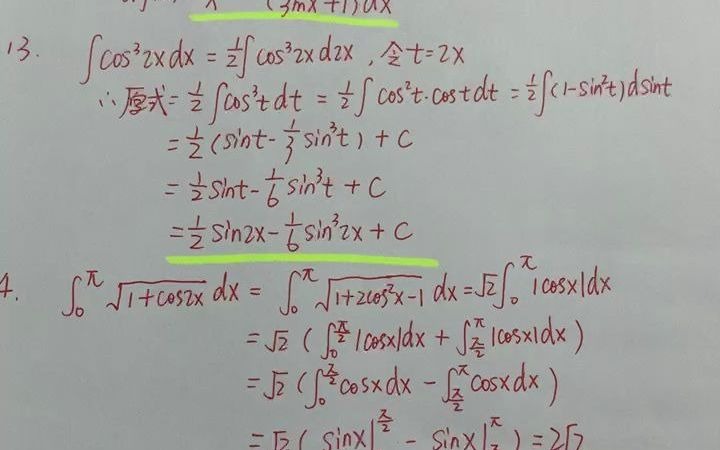 (3lnx+1)dx
13. ∫cos³2xdx = 1/2∫cos³2xd2x , 令t=2x
∴原式= 1/2∫cos³tdt = 1/2∫cos²t·costdt = 1/2∫(1-sin²t)dsint
= 1/2(sint - 1/3 sin³t) + C
= 1/2 sint - 1/6 sin³t + C
= 1/2 sin2x - 1/6 sin³2x + C
4. ∫₀^π √(1+cos2x) dx = ∫₀^π √(1+2cos²x-1) dx = √2∫₀^π |cosx|dx
= √2 ( ∫₀^(π/2) |cosx|dx + ∫_(π/2)^π |cosx|dx )
= √2 ( ∫₀^(π/2) cosxdx - ∫_(π/2)^π cosxdx )
= √2 ( sinx|^(π/2) - sinx|^π ) = 2√2